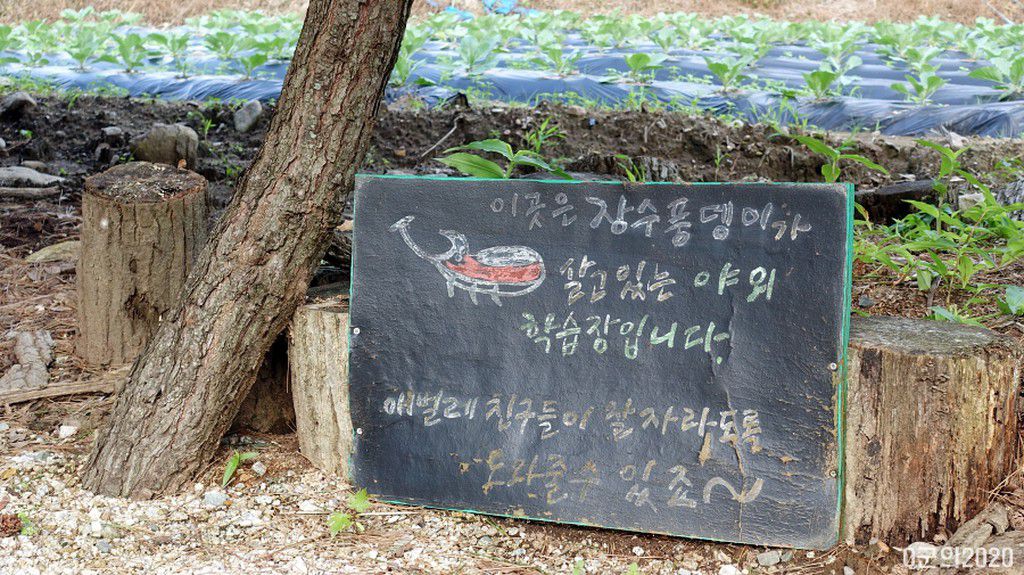 이곳은 장수풍뎅이가
살고있는 야외
학습장입니다.
애벌레 친구들이 잘 자라도록
도와줄수 있죠~